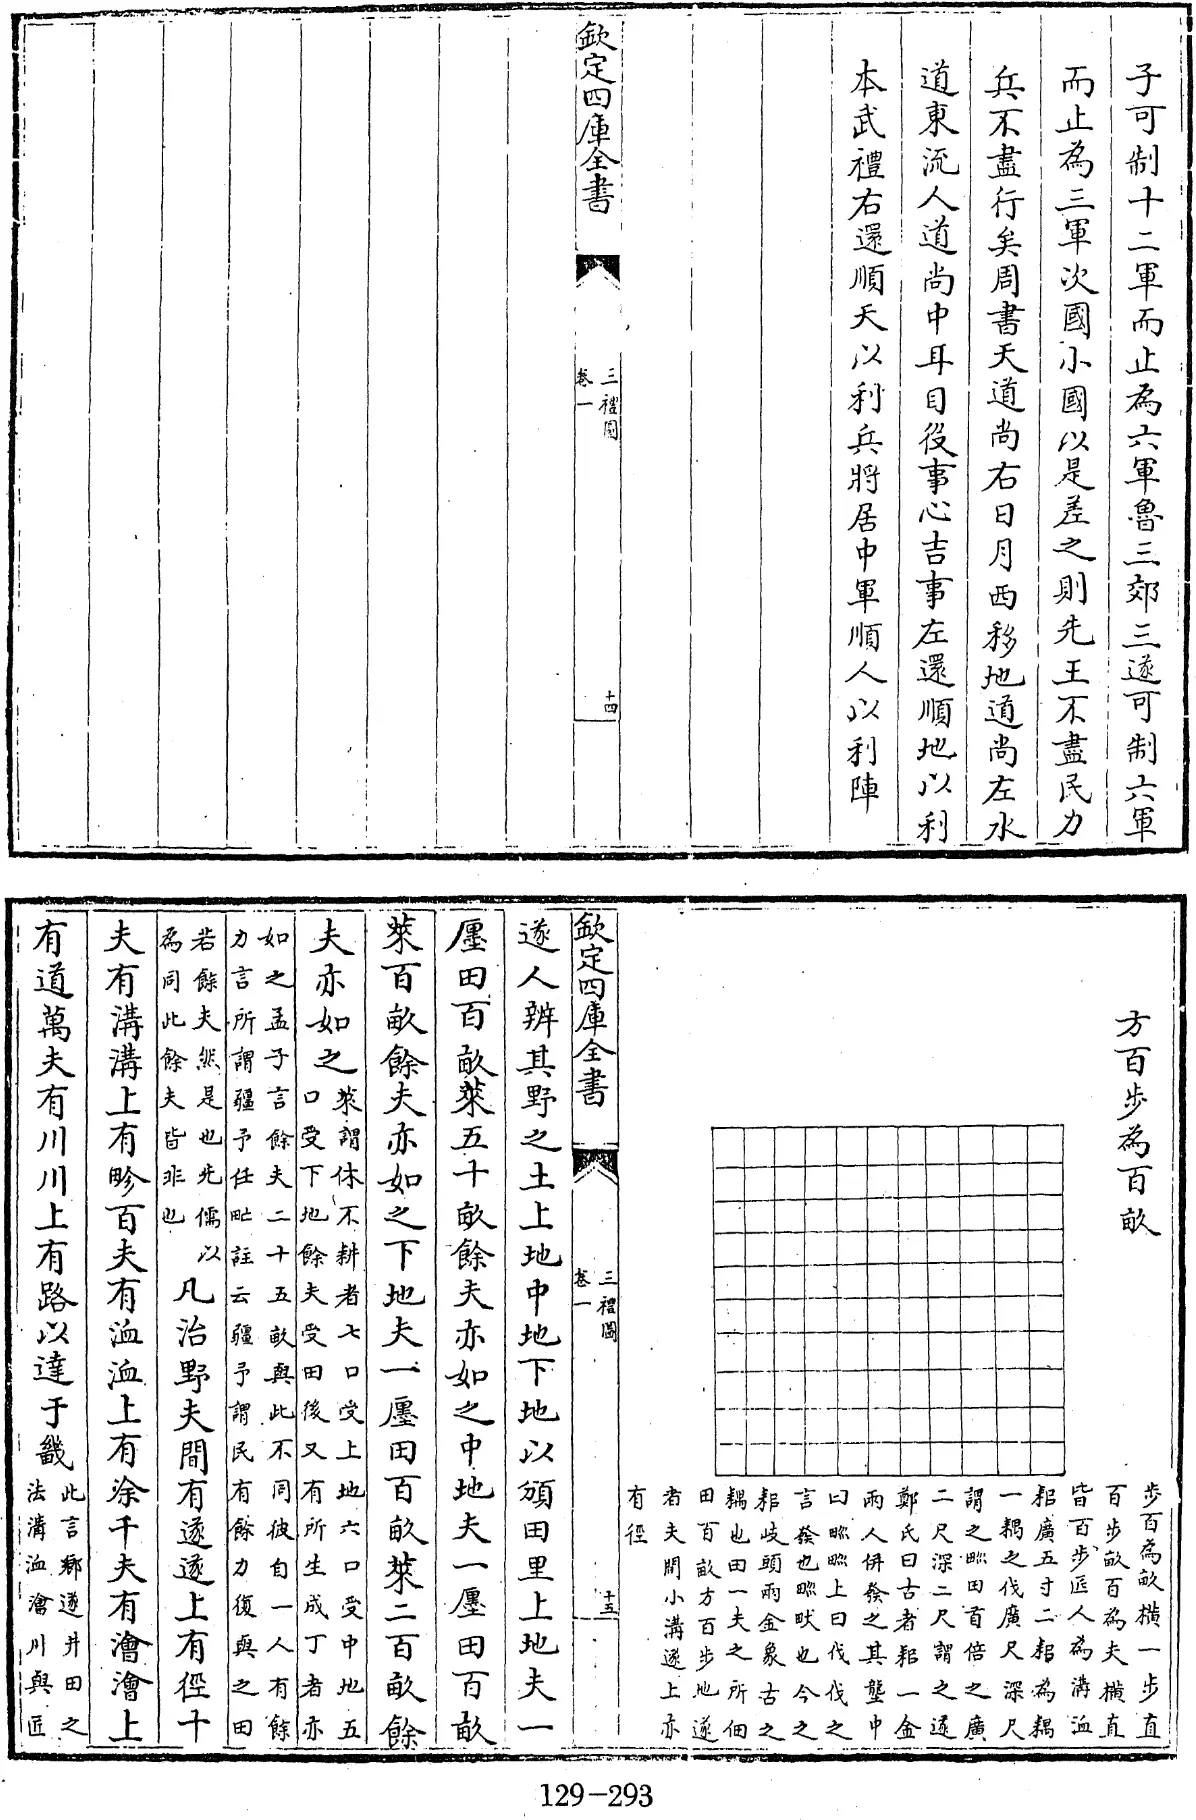 子可制十二軍而止為六軍魯三郊三遂可制六軍
而止為三軍次國小國以是差之則先王不盡民力
兵不盡行矣周書天道尚右日月西移地道尚左水
道東流人道尚中耳目役事心吉事左還順地以利
本武禮右還順天以利兵將居中軍順人以利陣
欽定四庫全書
三禮圖
卷一
十四
方百步為百畝
步百為畝橫一步直
百步畝百為夫橫直
皆百步匠人為溝洫
耜廣五寸二耜為耦
一耦之伐廣尺深尺
謂之𤰕田首倍之廣
二尺深二尺謂之遂
鄭氏曰古者耜一金
兩人併發之其壟中
曰𤰕𤰕上曰伐伐之
言發也𤰕畎也今之
耜岐頭兩金象古之
耦也田一夫之所佃
田百畝方百步地遂
者夫間小溝遂上亦
有徑
欽定四庫全書
三禮圖
卷一
十五
遂人辨其野之土上地中地下地以頒田里上地夫一
㕓田百畝萊五十畝餘夫亦如之中地夫一㕓田百畝
萊百畝餘夫亦如之下地夫一㕓田百畝萊二百畝餘
夫亦如之
萊謂休不耕者七口受上地六口受中地五
口受下地餘夫受田後又有所生成丁者亦
如之孟子言餘夫二十五畝與此不同彼自一人有餘
力言所謂疆予任甿註云疆予謂民有餘力復與之田
若餘夫然是也先儒以
為同此餘夫皆非也
凡治野夫間有遂遂上有徑十
夫有溝溝上有畛百夫有洫洫上有涂千夫有澮澮上
有道萬夫有川川上有路以達于畿
此言鄉遂井田之
法溝洫澮川與匠
129-293